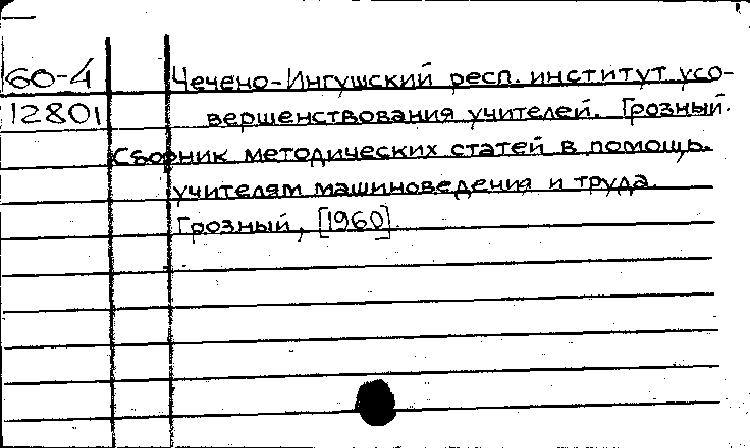 60-4 Чечено-Ингушский респ. институт усо-
12801 вершенствования учителей. Грозный.
Сборник методических статей в помощь
учителям машиноведения и труда.
Грозный, [1960]